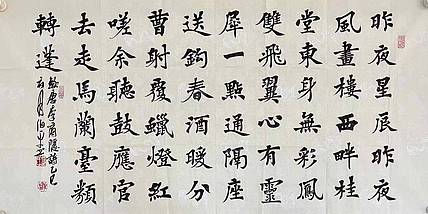 昨夜星辰昨夜
風畫樓西畔桂
堂東身無彩鳳
雙飛翼心有靈
犀一點通隔座
送鈎春酒暖分
曹射覆蠟燈紅
嗟余聽鼓應官
去走馬蘭臺類
轉蓬
唐李商隱詩乙巳